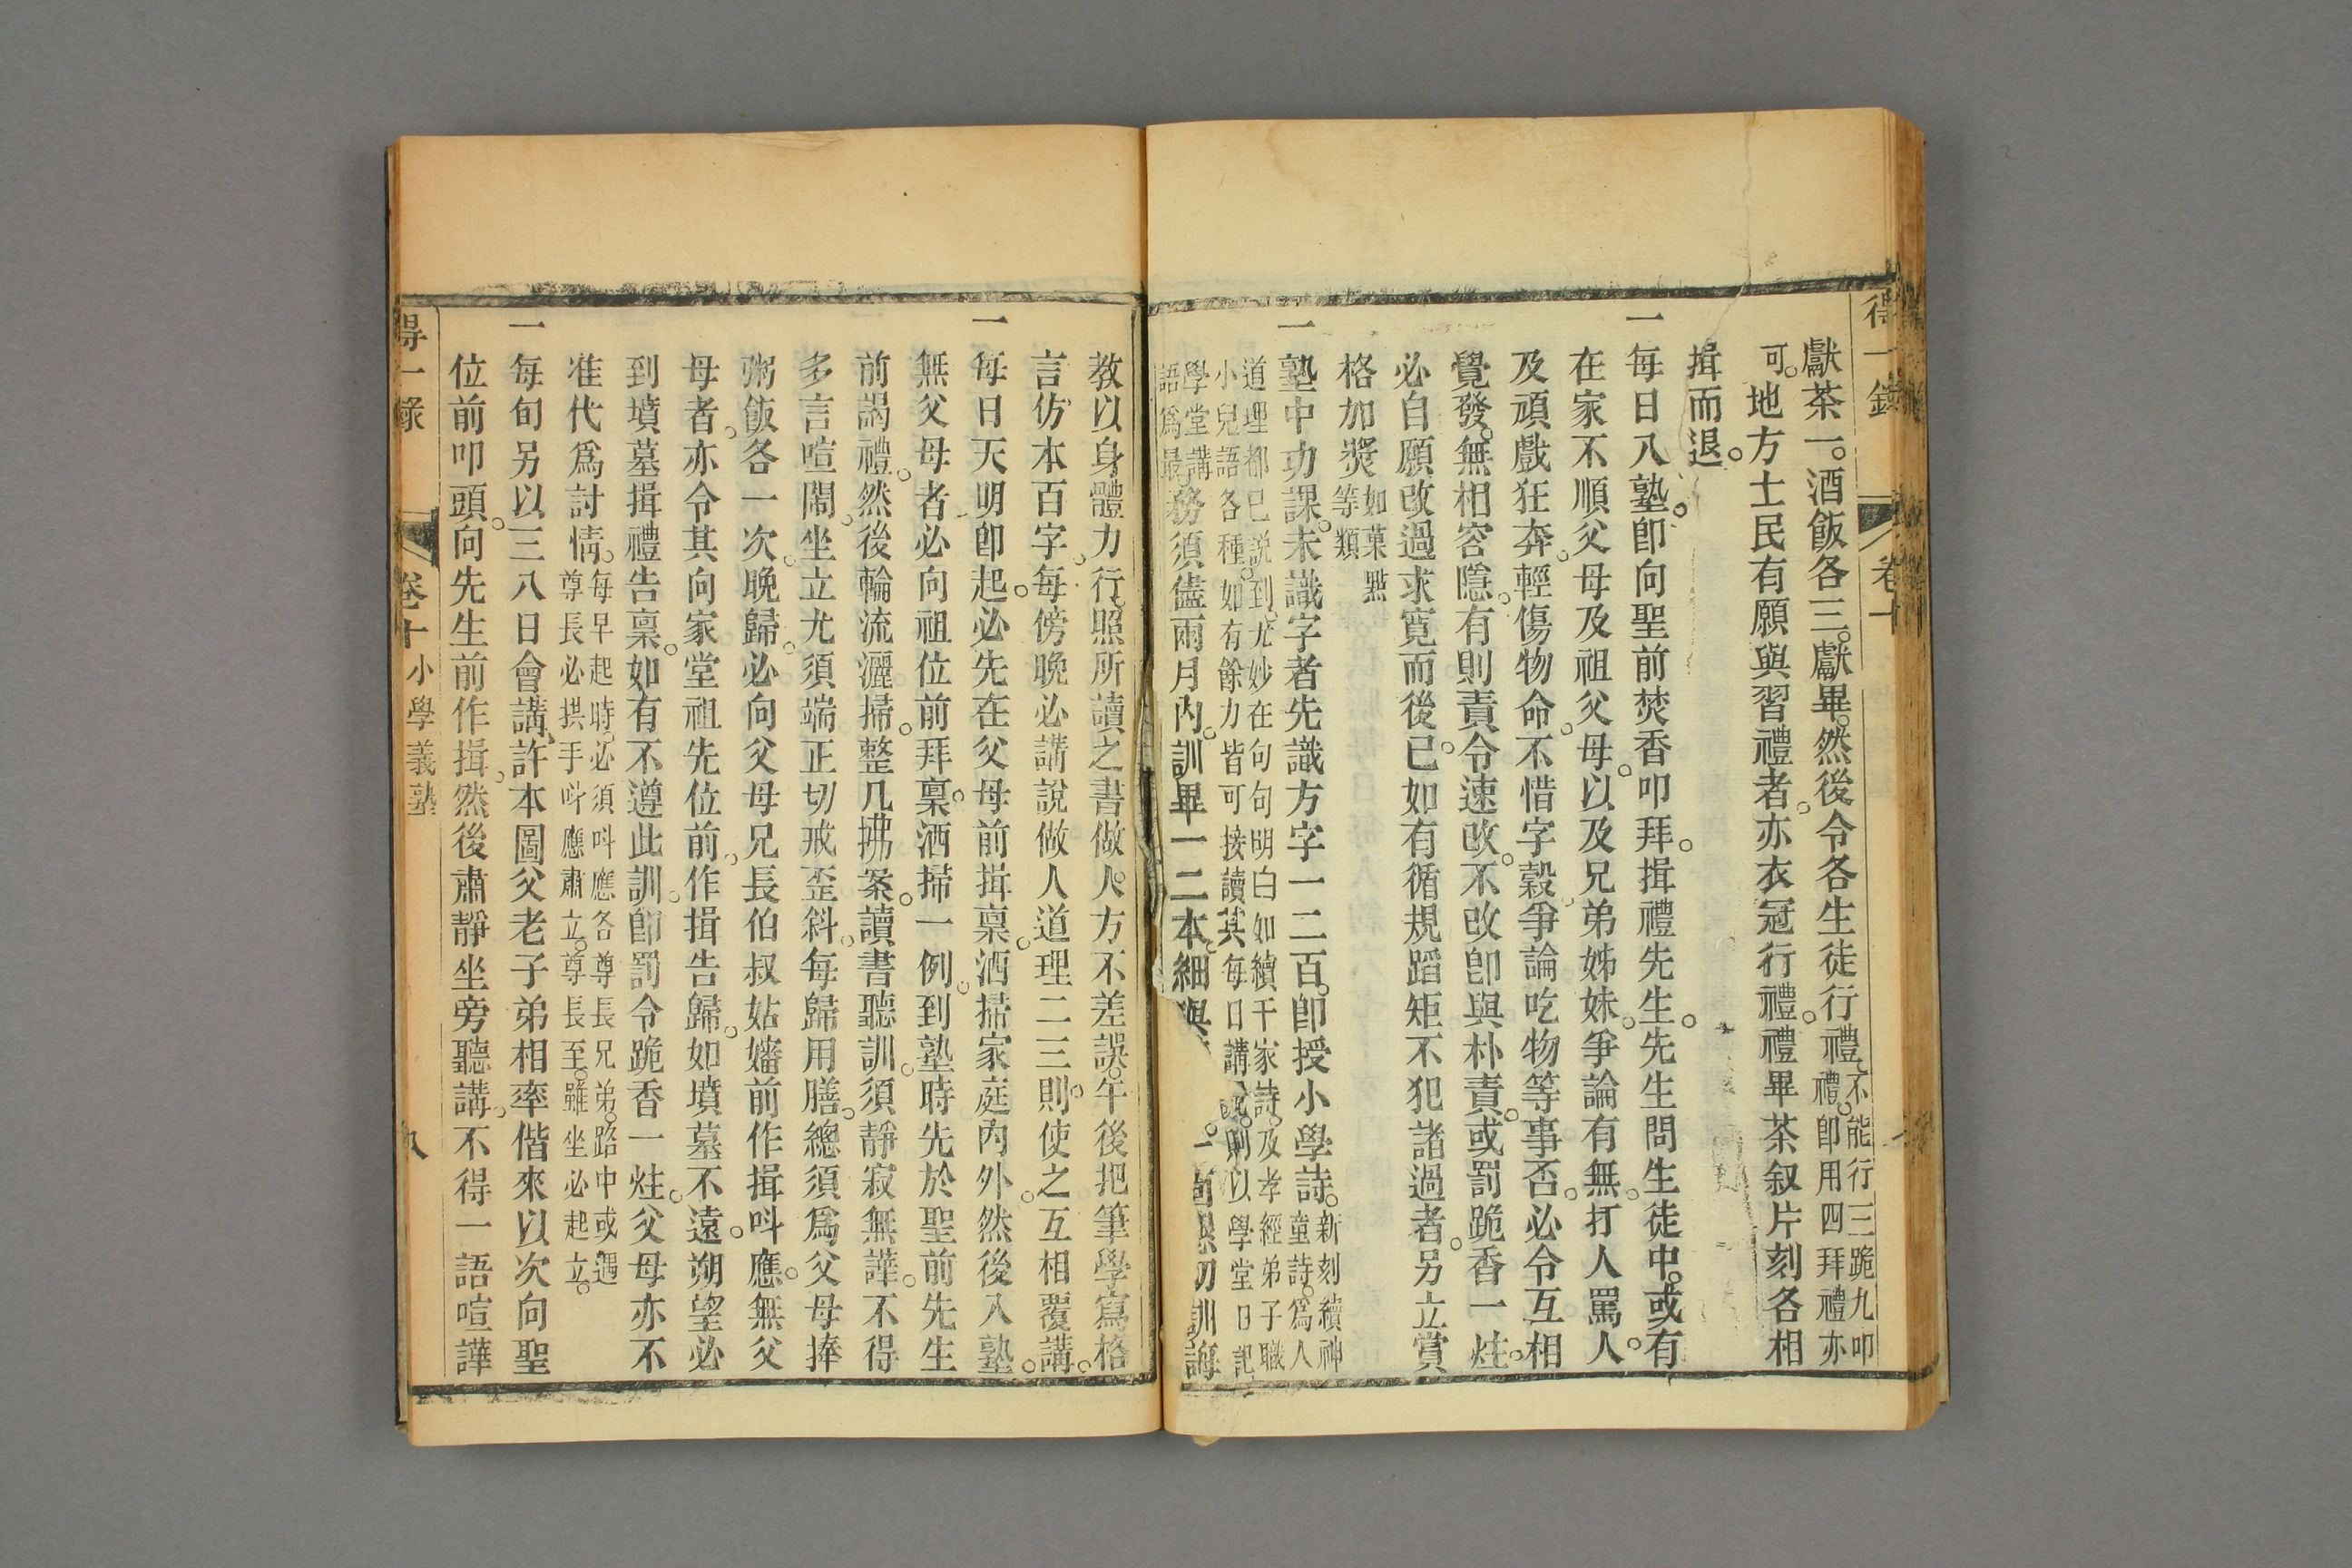 得一錄 卷十
獻茶一。酒飯各三。獻畢。然後令各生徒行禮。不能行三跪九叩
禮。卽用四拜禮亦
可。地方士民有願與習禮者。亦衣冠行禮。禮畢茶叙片刻各相
揖而退。
一每日入塾。卽向聖前焚香叩拜。揖禮先生。先生問生徒中。或有
在家不順父母及祖父母。以及兄弟姊妹。爭論有無。打人罵人。
及頑戲狂奔。輕傷物命。不惜字穀。爭論吃物等事否。必令互相
覺發。無相容隱。有則責令速改。不改卽與朴責。或罰跪香一炷。
必自願改過求寬而後已。如有循規蹈矩不犯諸過者。另立賞
格加奬如菓點
等類
一塾中功課。未識字者先識方字一二百。卽授小學詩。新刻續神
童詩。爲人
道理都已說到。尤妙在句句明白如續千家詩。及孝經弟子職
小兒語各種。如有餘力皆可接讀其每日講則以學堂日記
學堂講
語爲最務須儘兩月內。訓畢一二本。細與切訓誨
教以身體力行。照所讀之書做人。方不差誤。午後把筆學寫格
言仿本百字。每傍晚必講說做人道理二三則。使之互相覆講。
一每日天明卽起。必先在父母前揖稟。洒掃家庭內外。然後入塾。
無父母者。必向祖位前拜稟。洒掃一例。到塾時先於聖前先生
前謁禮。然後輪流灑掃。整几拂案。讀書聽訓。須靜寂無譁。不得
多言喧鬧。坐立尤須端正切戒歪斜。每歸用膳。總須爲父母捧
粥飯各一次。晚歸。必向父母兄長伯叔姑嬸前作揖呌應。無父
母者。亦令其向家堂祖先位前。作揖告歸。如墳墓不遠。朔望必
到墳墓揖禮告稟。如有不遵此訓。卽罰令跪香一炷。父母亦不
准代爲討情。每早起時。必須呌應各尊長兄弟。路中或遇
尊長必拱手呌應肅立。尊長至。雖坐必起立。
一每旬另以三八日會講。許本圖父老子弟相率偕來以次向聖
位前叩頭。向先生前作揖。然後肅靜坐旁聽講。不得一語喧譁
得一錄 卷十 小學義塾 八